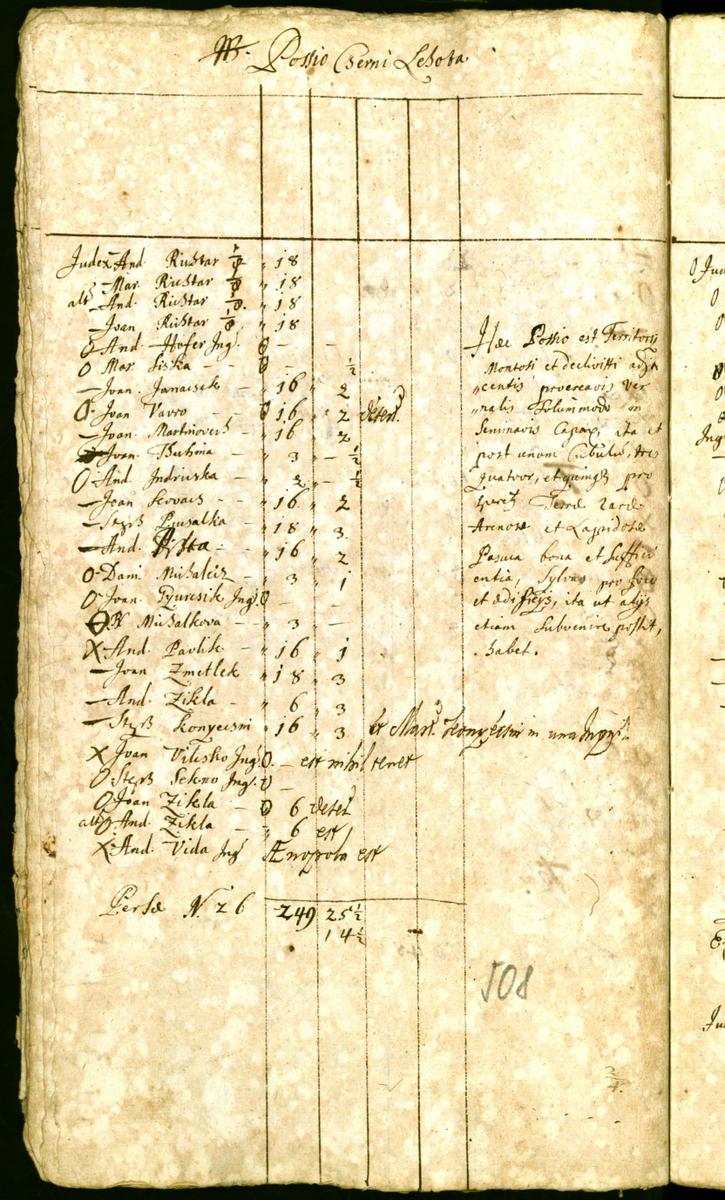 Possio Cserni Lehota
Judex And. Richtar „ 18
Mar. Richtar „ 18
alt And. Richtar „ 18
Joan Richtar „ 18
O And. Hofer Inq. O — —
O Mar. Siska — — O — ½
— Joan. Janacsek — „ 16 „ 2
O Joan Vavro — O 16 „ 2 deser.
— Joan. Martinovics — „ 16 „ 2
Joan. — „ 3 „ — ½
O And Indruska — „ 2 „ — ½
— Joan Kovacs — „ 16 „ 2
— Steph — „ 18 „ 3
— And. — „ 16 „ 2
O Dani Michalcik — „ 3 „ 1
O Joan. Inq. O — —
Michalkova — „ 3 „ —
X And. Pavlik — „ 16 „ 1
— Joan Zmetlek „ 18 „ 3
— And. Zikla — „ 6 „ 3
— Steph Konyecsni „ 16 „ 3 et Mart. Konyecsni in una
X Joan Inq. O. — est nihil tenet
O Steph Inq. O —
O Joan Zikla — O 6 deser
alt O And. Zikla — „ 6 est
X And. Vida Inq est
Persæ N. 26 249 25½
14½
Hæc Possio est Territorij
Montosi et declivitti adja
„centis provenavis Ver
„nalis Solummodo in
Seminavis Capax, ita et
post unum Cubulum, tres
quatvor, et quinque pro
Terræ
Arenosæ et Lapidosæ
Pascua bona et suffici
entia, Sylvas pro foco
et ædificijs, ita ut alijs
etiam Subvenire possit,
habet.
508